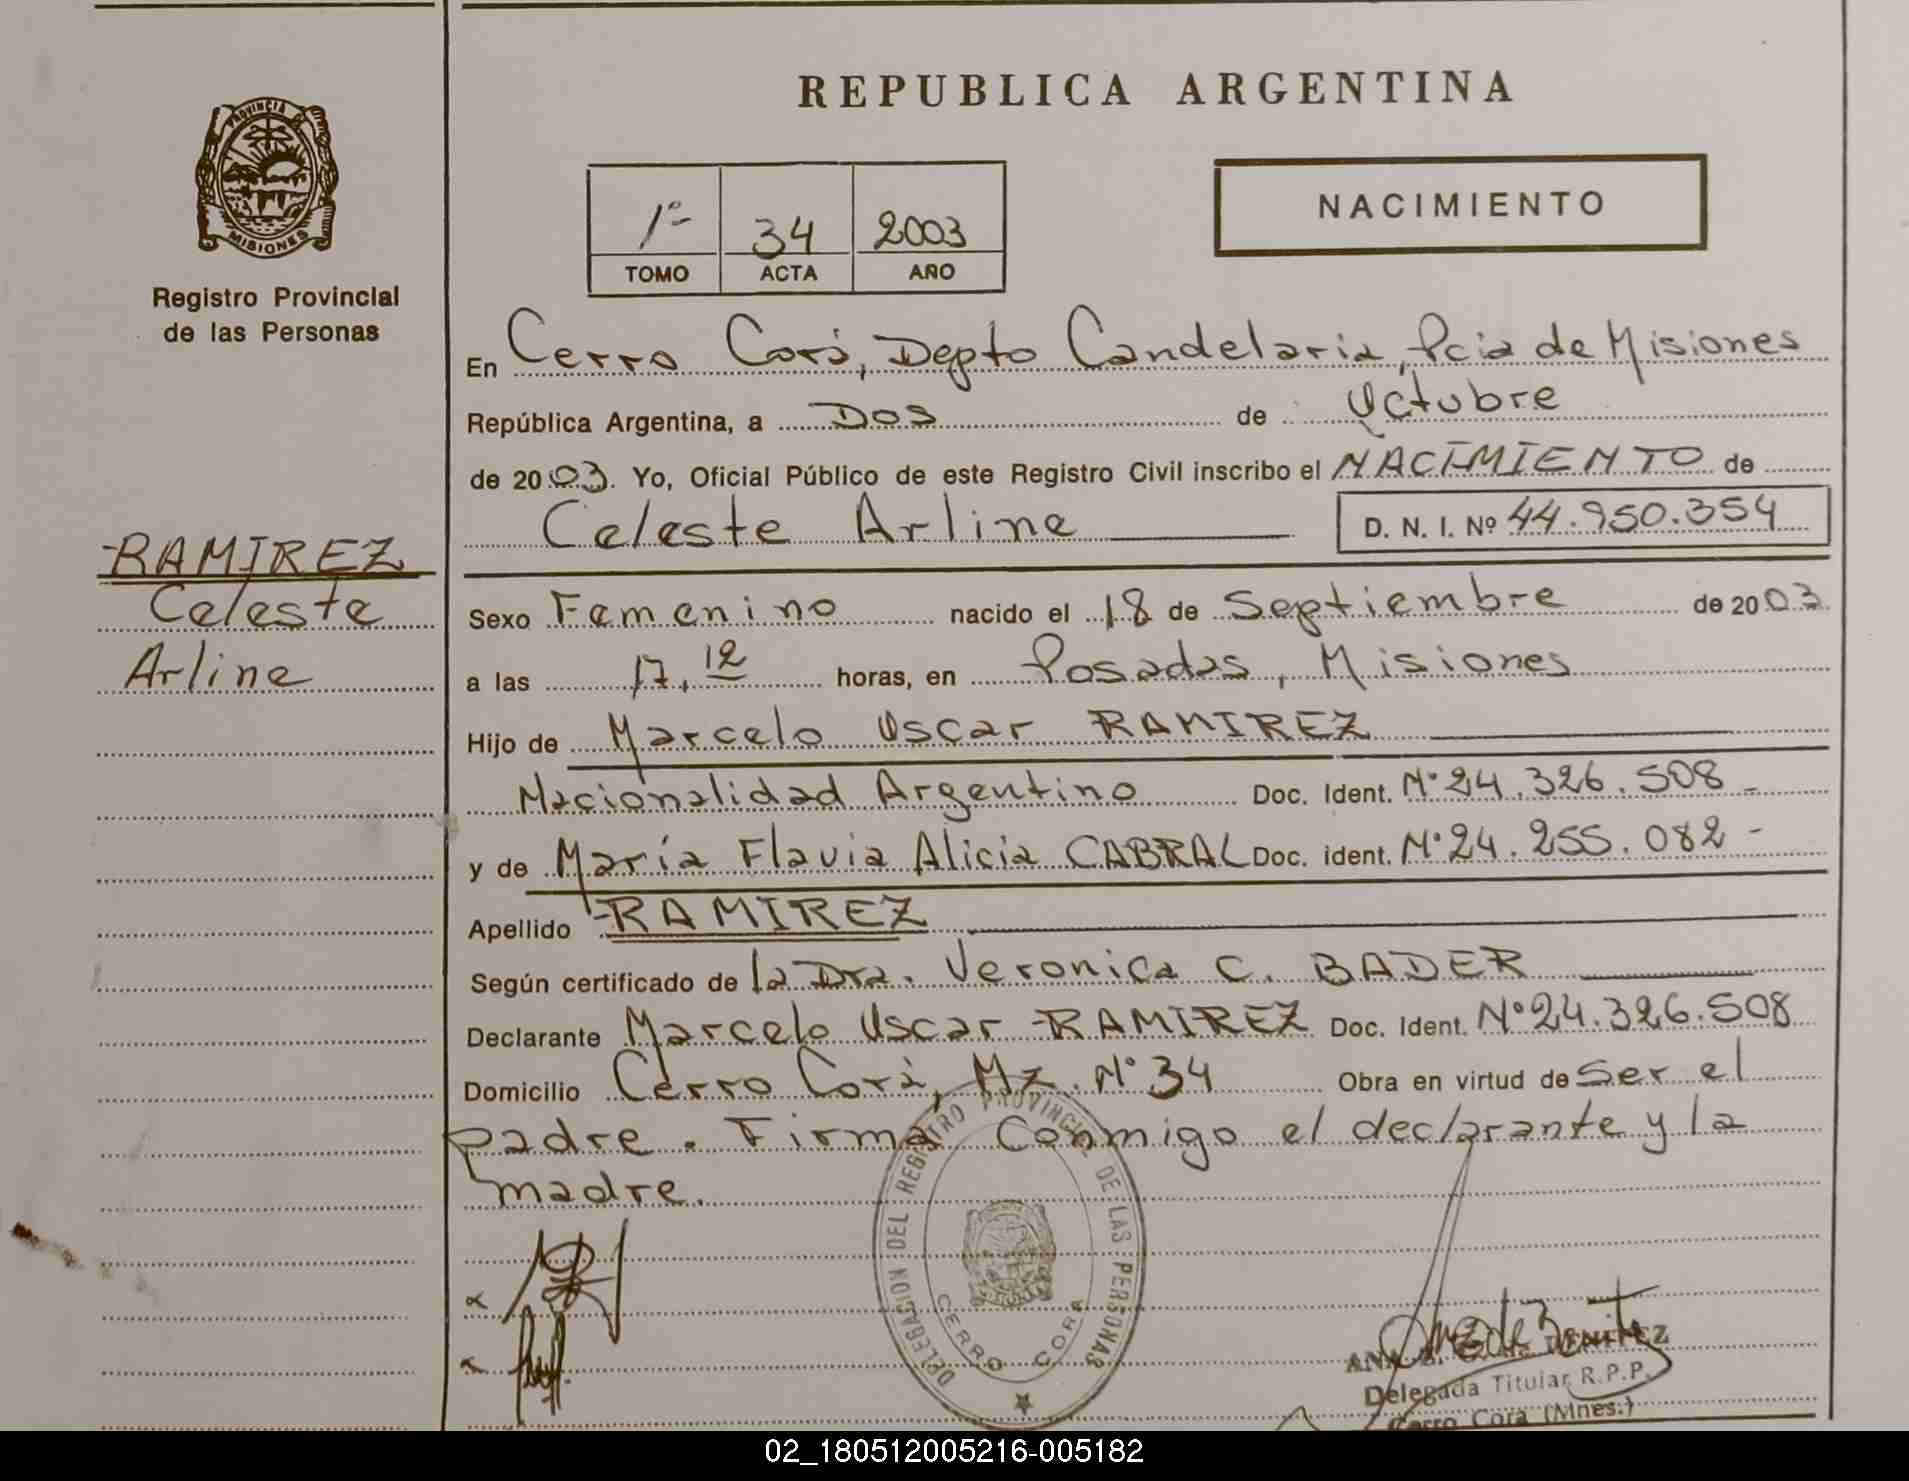 REPUBLICA ARGENTINA
PROVINCIA DE MISIONES
Registro Provincial
de las Personas
1º 34 2003
TOMO ACTA AÑO
NACIMIENTO
En Cerro Corá, Depto Candelaria, Pcia de Misiones
República Argentina, a Dos de Octubre
de 2003. Yo, Oficial Público de este Registro Civil inscribo el NACIMIENTO de
Celeste Arline D. N. I. Nº 44.950.354
RAMIREZ
Celeste
Arline
Sexo Femenino nacido el 18 de Septiembre de 2003
a las 17,12 horas, en Posadas, Misiones
Hijo de Marcelo Oscar RAMIREZ
Nacionalidad Argentino Doc. Ident. Nº 24.326.508-
y de María Flavia Alicia CABRAL Doc. ident. Nº 24.255.082-
Apellido RAMIREZ
Según certificado de la Dra. Veronica C. BADER
Declarante Marcelo Oscar RAMIREZ Doc. Ident. Nº 24.326.508
Domicilio Cerro Corá, Mz. Nº 34 Obra en virtud de Ser el
padre. Firma Conmigo el declarante y la
madre.
DELEGACION DEL REGISTRO PROVINCIAL DE LAS PERSONAS
CERRO CORA
ANA BENITEZ
Delegada Titular R.P.P.
Cerro Corá (Mnes.)
02_180512005216-005182